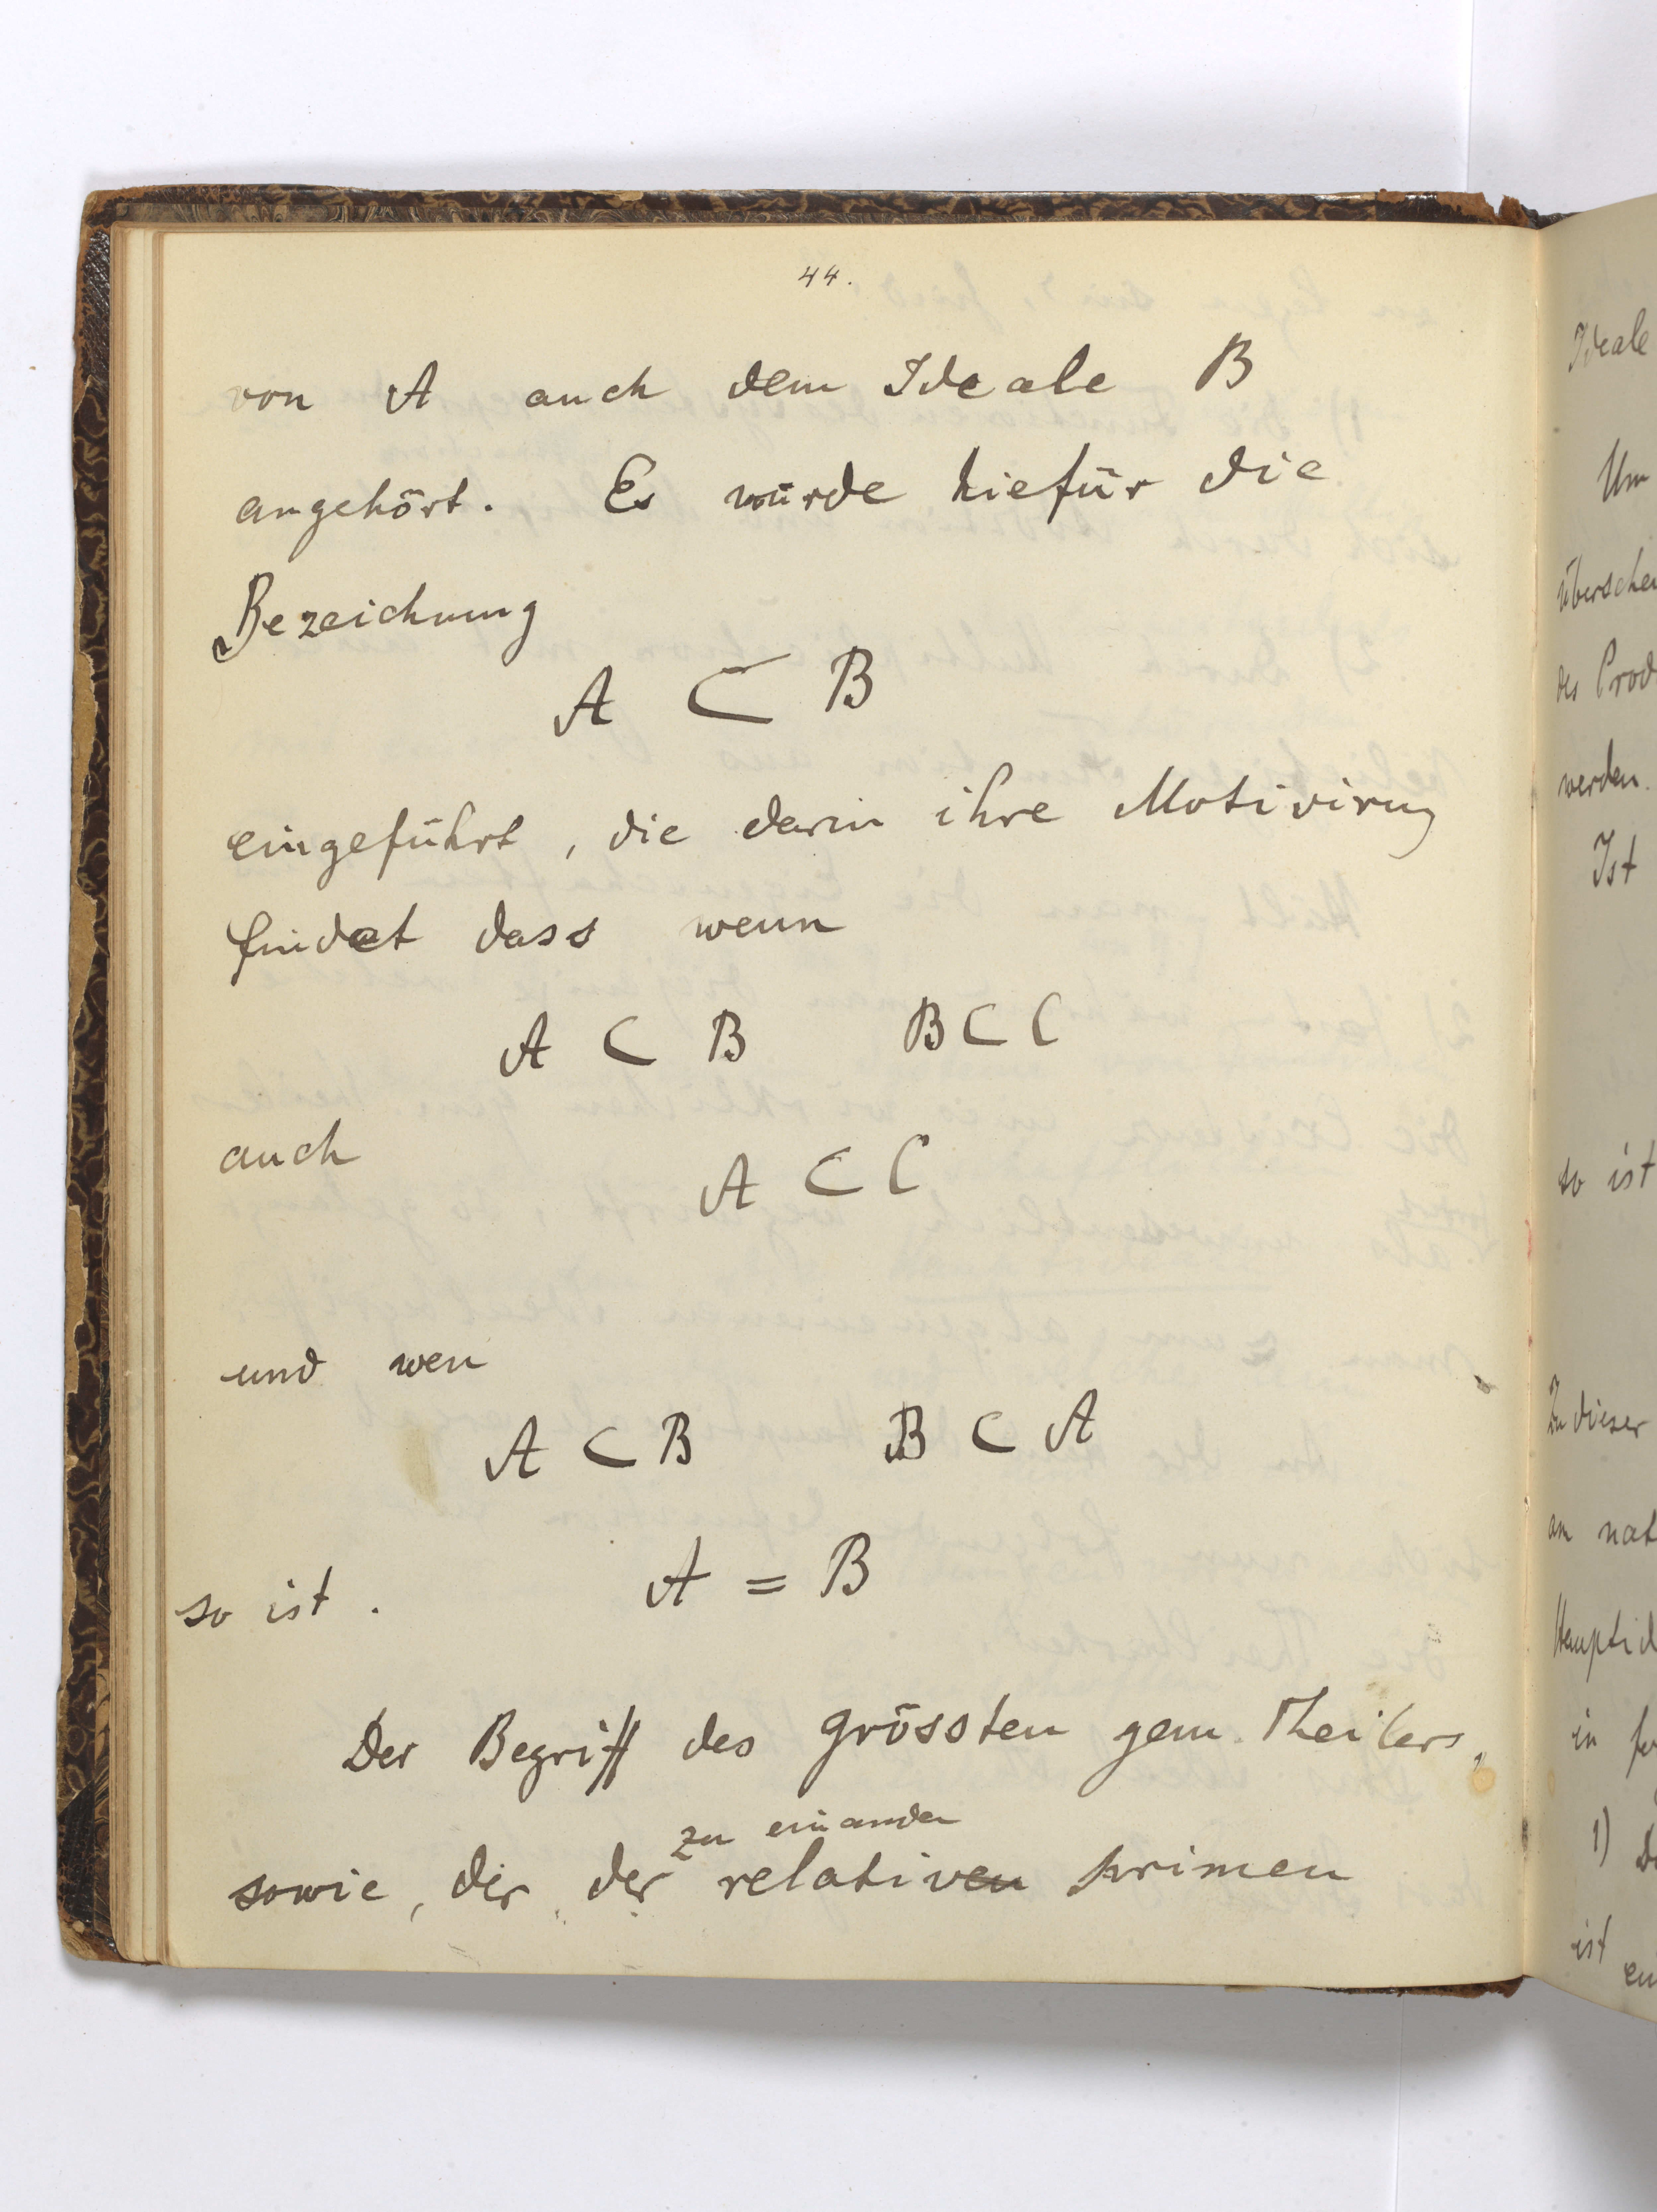 44.
von A auch dem Ideale B
angehört. Es wurde hiefür die
Bezeichnung
A ⊂ B
eingeführt, die darin ihre Motivirung
findet dass wenn
A ⊂ B B ⊂ C
auch A ⊂ C
und wen
A ⊂ B B ⊂ A
so ist. A = B
Der Begriff des grössten gem. Theilers,
zu einander
sowie, der der relativen primen
Ideale
Um
des Prod
werden.
Ist
so ist
Zu dieser
an nat
Hauptid
in
1)
ist